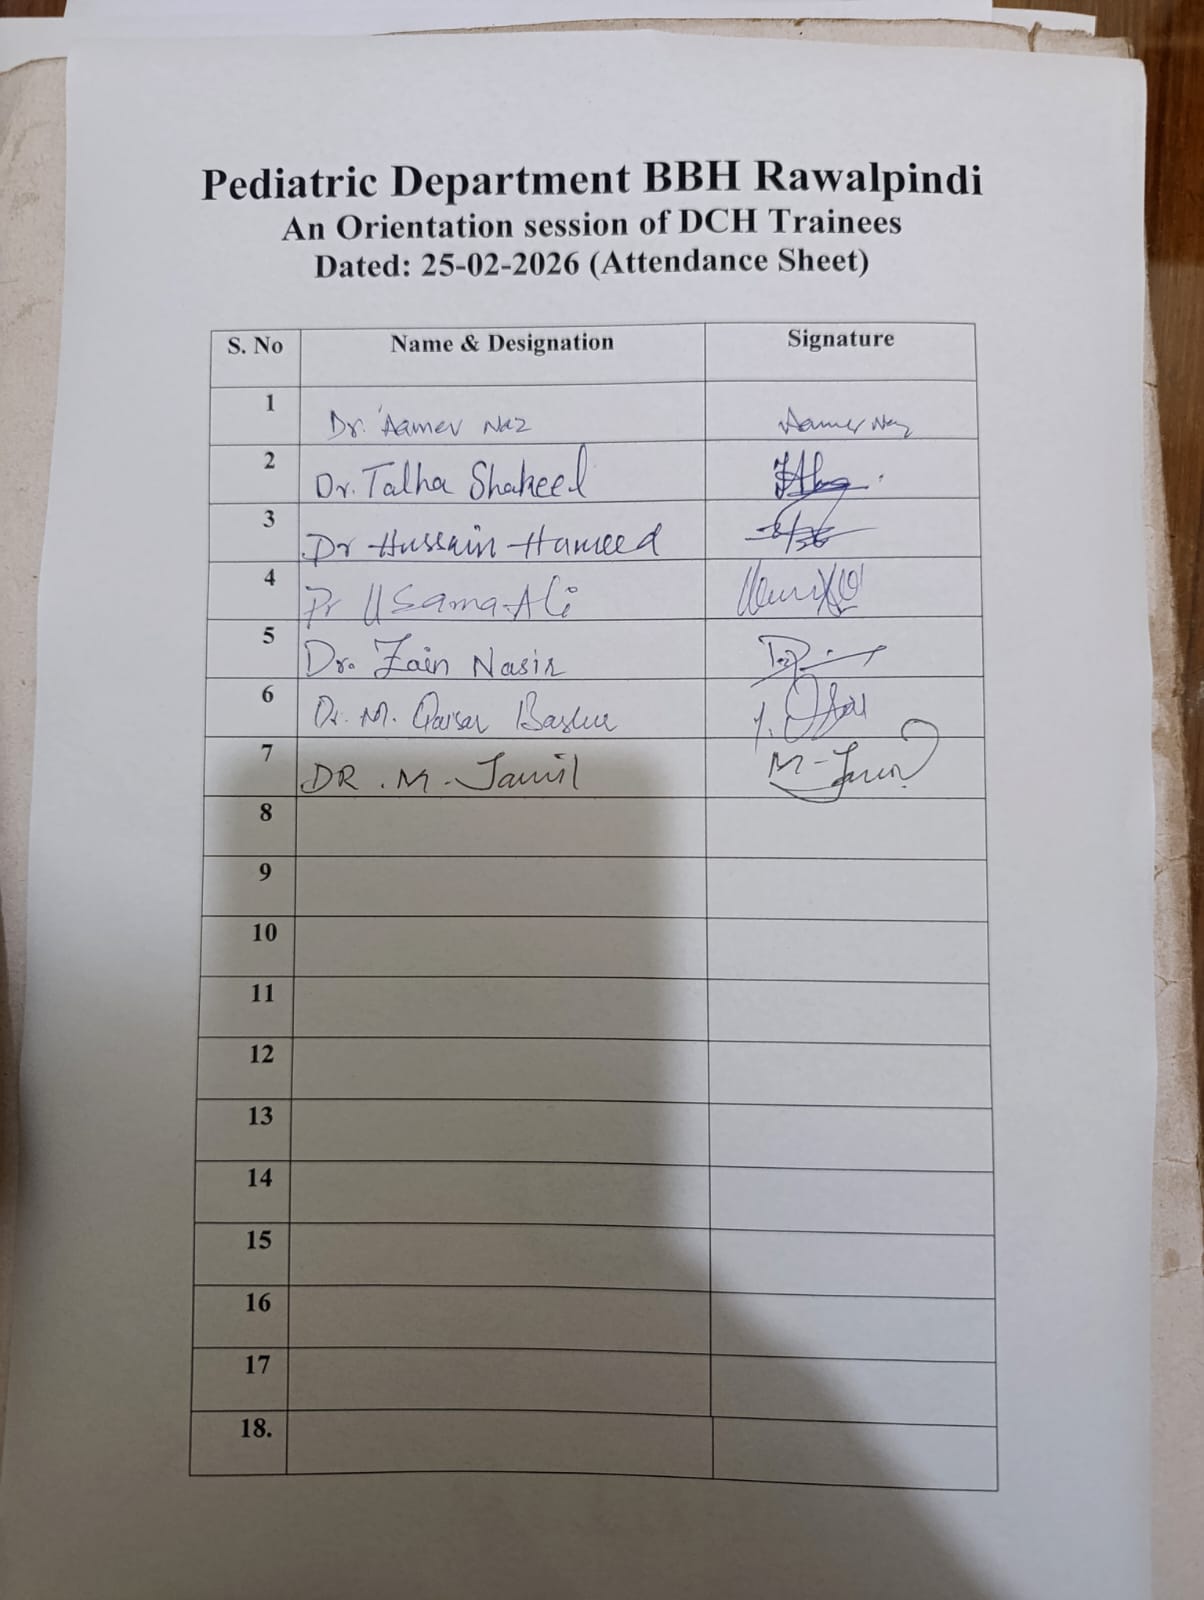 Pediatric Department BBH Rawalpindi
An Orientation session of DCH Trainees
Dated: 25-02-2026 (Attendance Sheet)
S. No Name & Designation Signature
1 Dr. Aamer Naz Aamer Naz
2 Dr. Talha Shakeel
3 Dr Hussain Hameed
4 Dr Usama Ali
5 Dr. Zain Nasir
6 Dr. M. Qaisar Bashir
7 DR. M. Jamil M-Jamil
8
9
10
11
12
13
14
15
16
17
18.